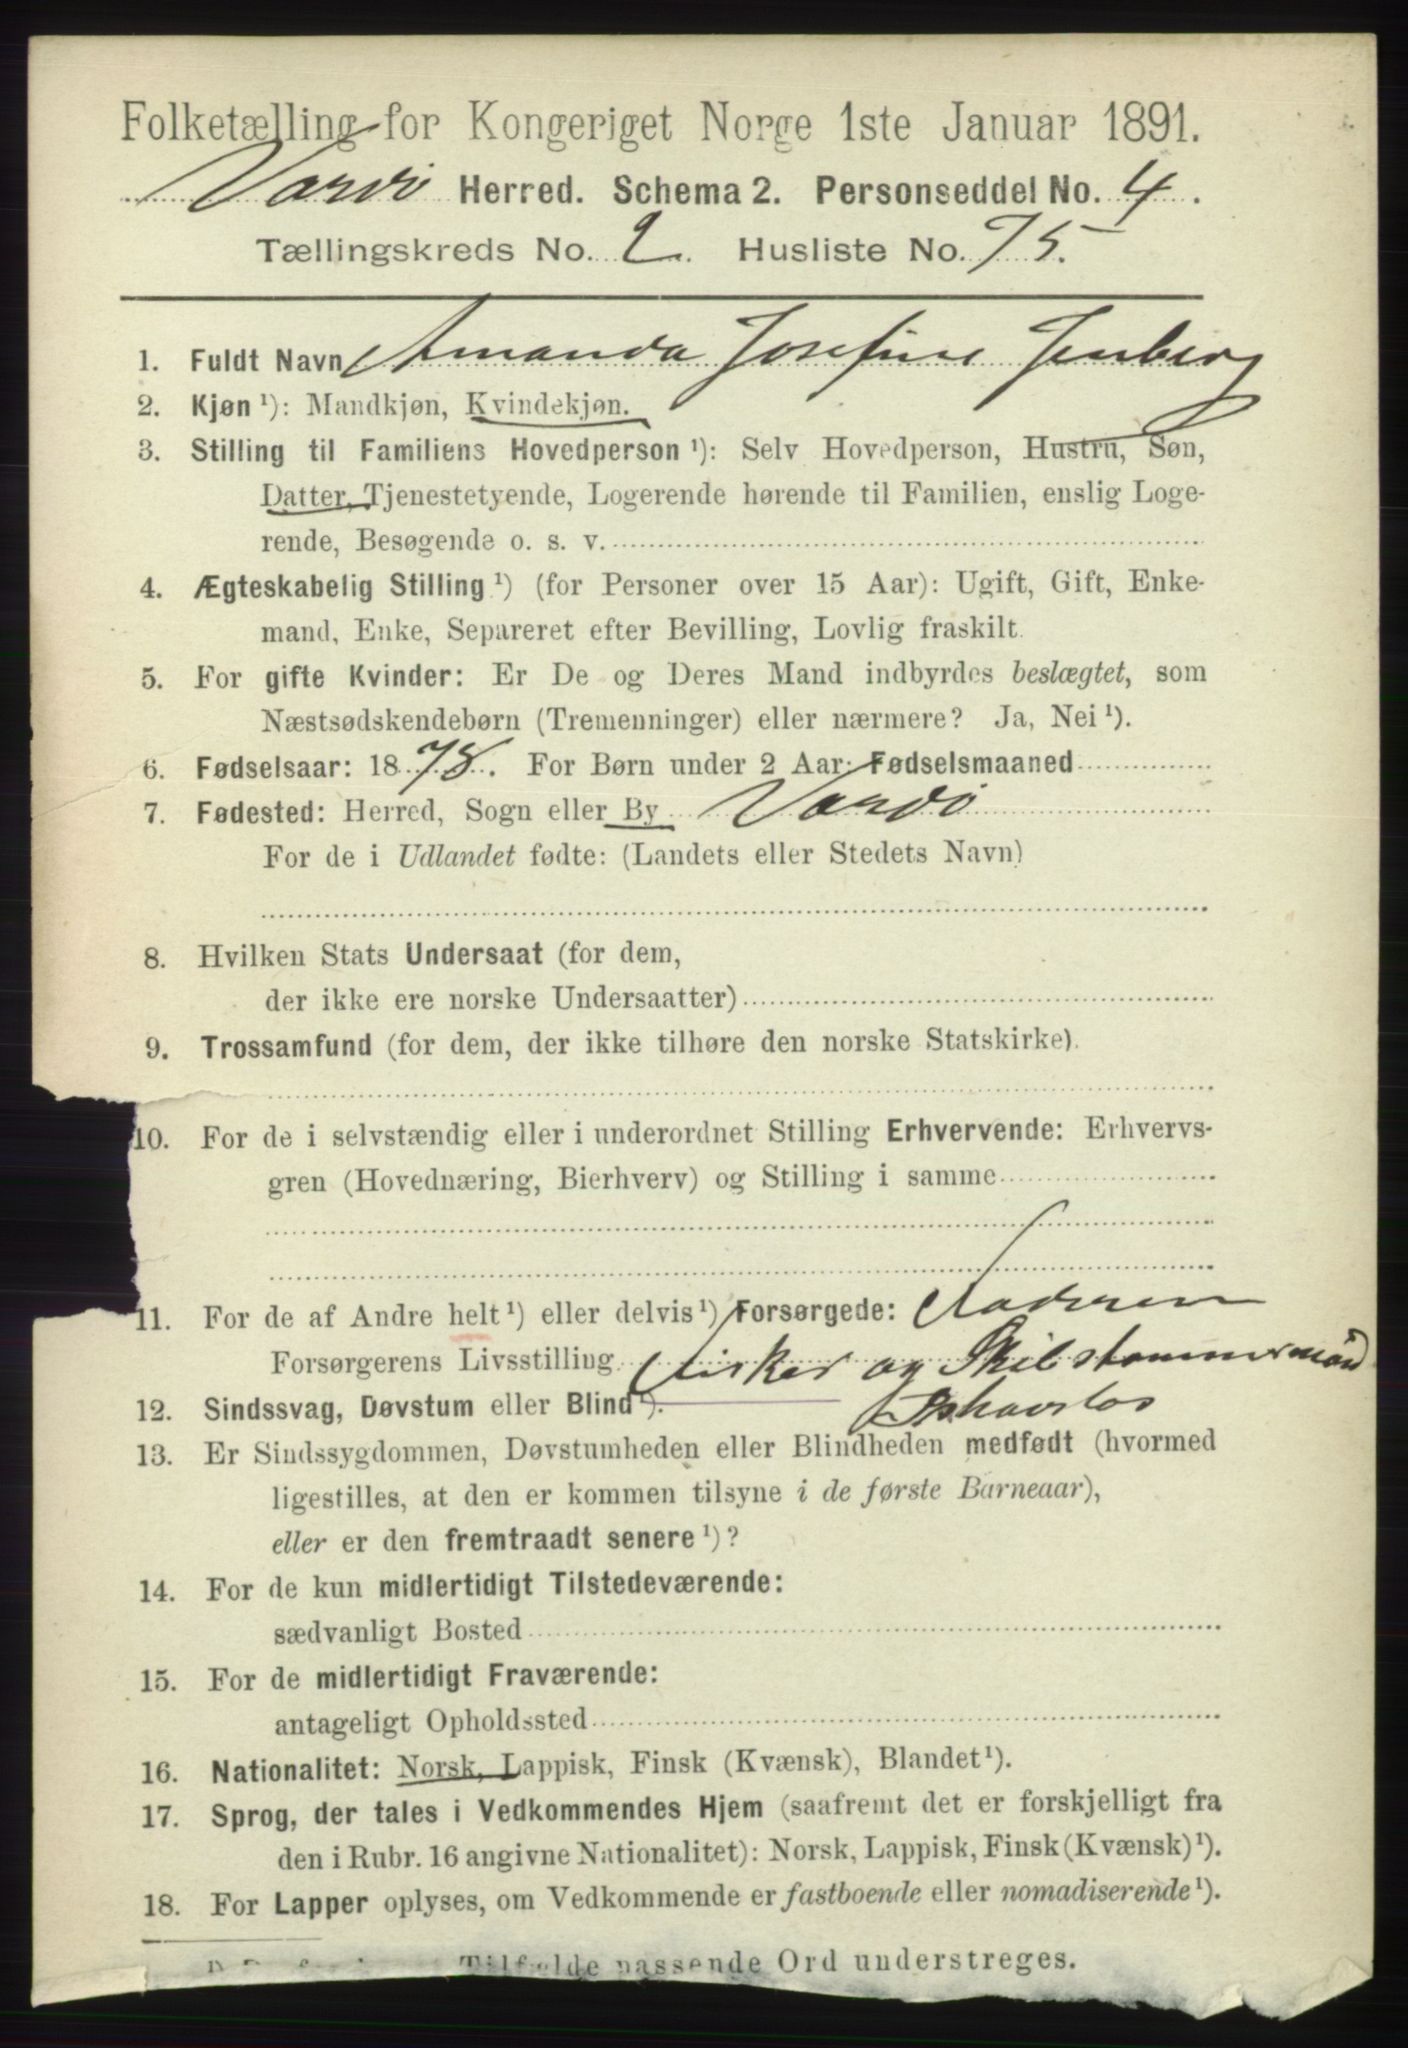 Folketælling for Kongeriget Norge 1ste Januar 1891.
Vardö Herred. Schema 2. Personseddel No. 4.
Tællingskreds No. 2. Husliste No. 75.
1. Fuldt Navn Amanda Josefine Jenberg
2. Kjøn ¹): Mandkjøn, Kvindekjøn.
3. Stilling til Familiens Hovedperson ¹): Selv Hovedperson, Hustru, Søn,
Datter, Tjenestetyende, Logerende hørende til Familien, enslig Loge-
rende, Besøgende o. s. v.
4. Ægteskabelig Stilling ¹) (for Personer over 15 Aar): Ugift, Gift, Enke-
mand, Enke, Separeret efter Bevilling, Lovlig fraskilt.
5. For gifte Kvinder: Er De og Deres Mand indbyrdes beslægtet, som
Næstsødskendebørn (Tremenninger) eller nærmere? Ja, Nei ¹).
6. Fødselsaar: 1878. For Børn under 2 Aar: Fødselsmaaned
7. Fødested: Herred, Sogn eller By Vardö
For de i Udlandet fødte: (Landets eller Stedets Navn)
8. Hvilken Stats Undersaat (for dem,
der ikke ere norske Undersaatter)
9. Trossamfund (for dem, der ikke tilhøre den norske Statskirke).
10. For de i selvstændig eller i underordnet Stilling Erhvervende: Erhvervs-
gren (Hovednæring, Bierhverv) og Stilling i samme
11. For de af Andre helt ¹) eller delvis ¹) Forsørgede: Faderen
Forsørgerens Livsstilling Fisker og
12. Sindssvag, Døvstum eller Blind ¹). Ishavslos
13. Er Sindssygdommen, Døvstumheden eller Blindheden medfødt (hvormed
ligestilles, at den er kommen tilsyne i de første Barneaar),
eller er den fremtraadt senere ¹)?
14. For de kun midlertidigt Tilstedeværende:
sædvanligt Bosted
15. For de midlertidigt Fraværende:
antageligt Opholdssted
16. Nationalitet: Norsk, Lappisk, Finsk (Kvænsk), Blandet ¹).
17. Sprog, der tales i Vedkommendes Hjem (saafremt det er forskjelligt fra
den i Rubr. 16 angivne Nationalitet): Norsk, Lappisk, Finsk (Kvænsk) ¹).
18. For Lapper oplyses, om Vedkommende er fastboende eller nomadiserende ¹).
Tilfælde passende Ord understreges.